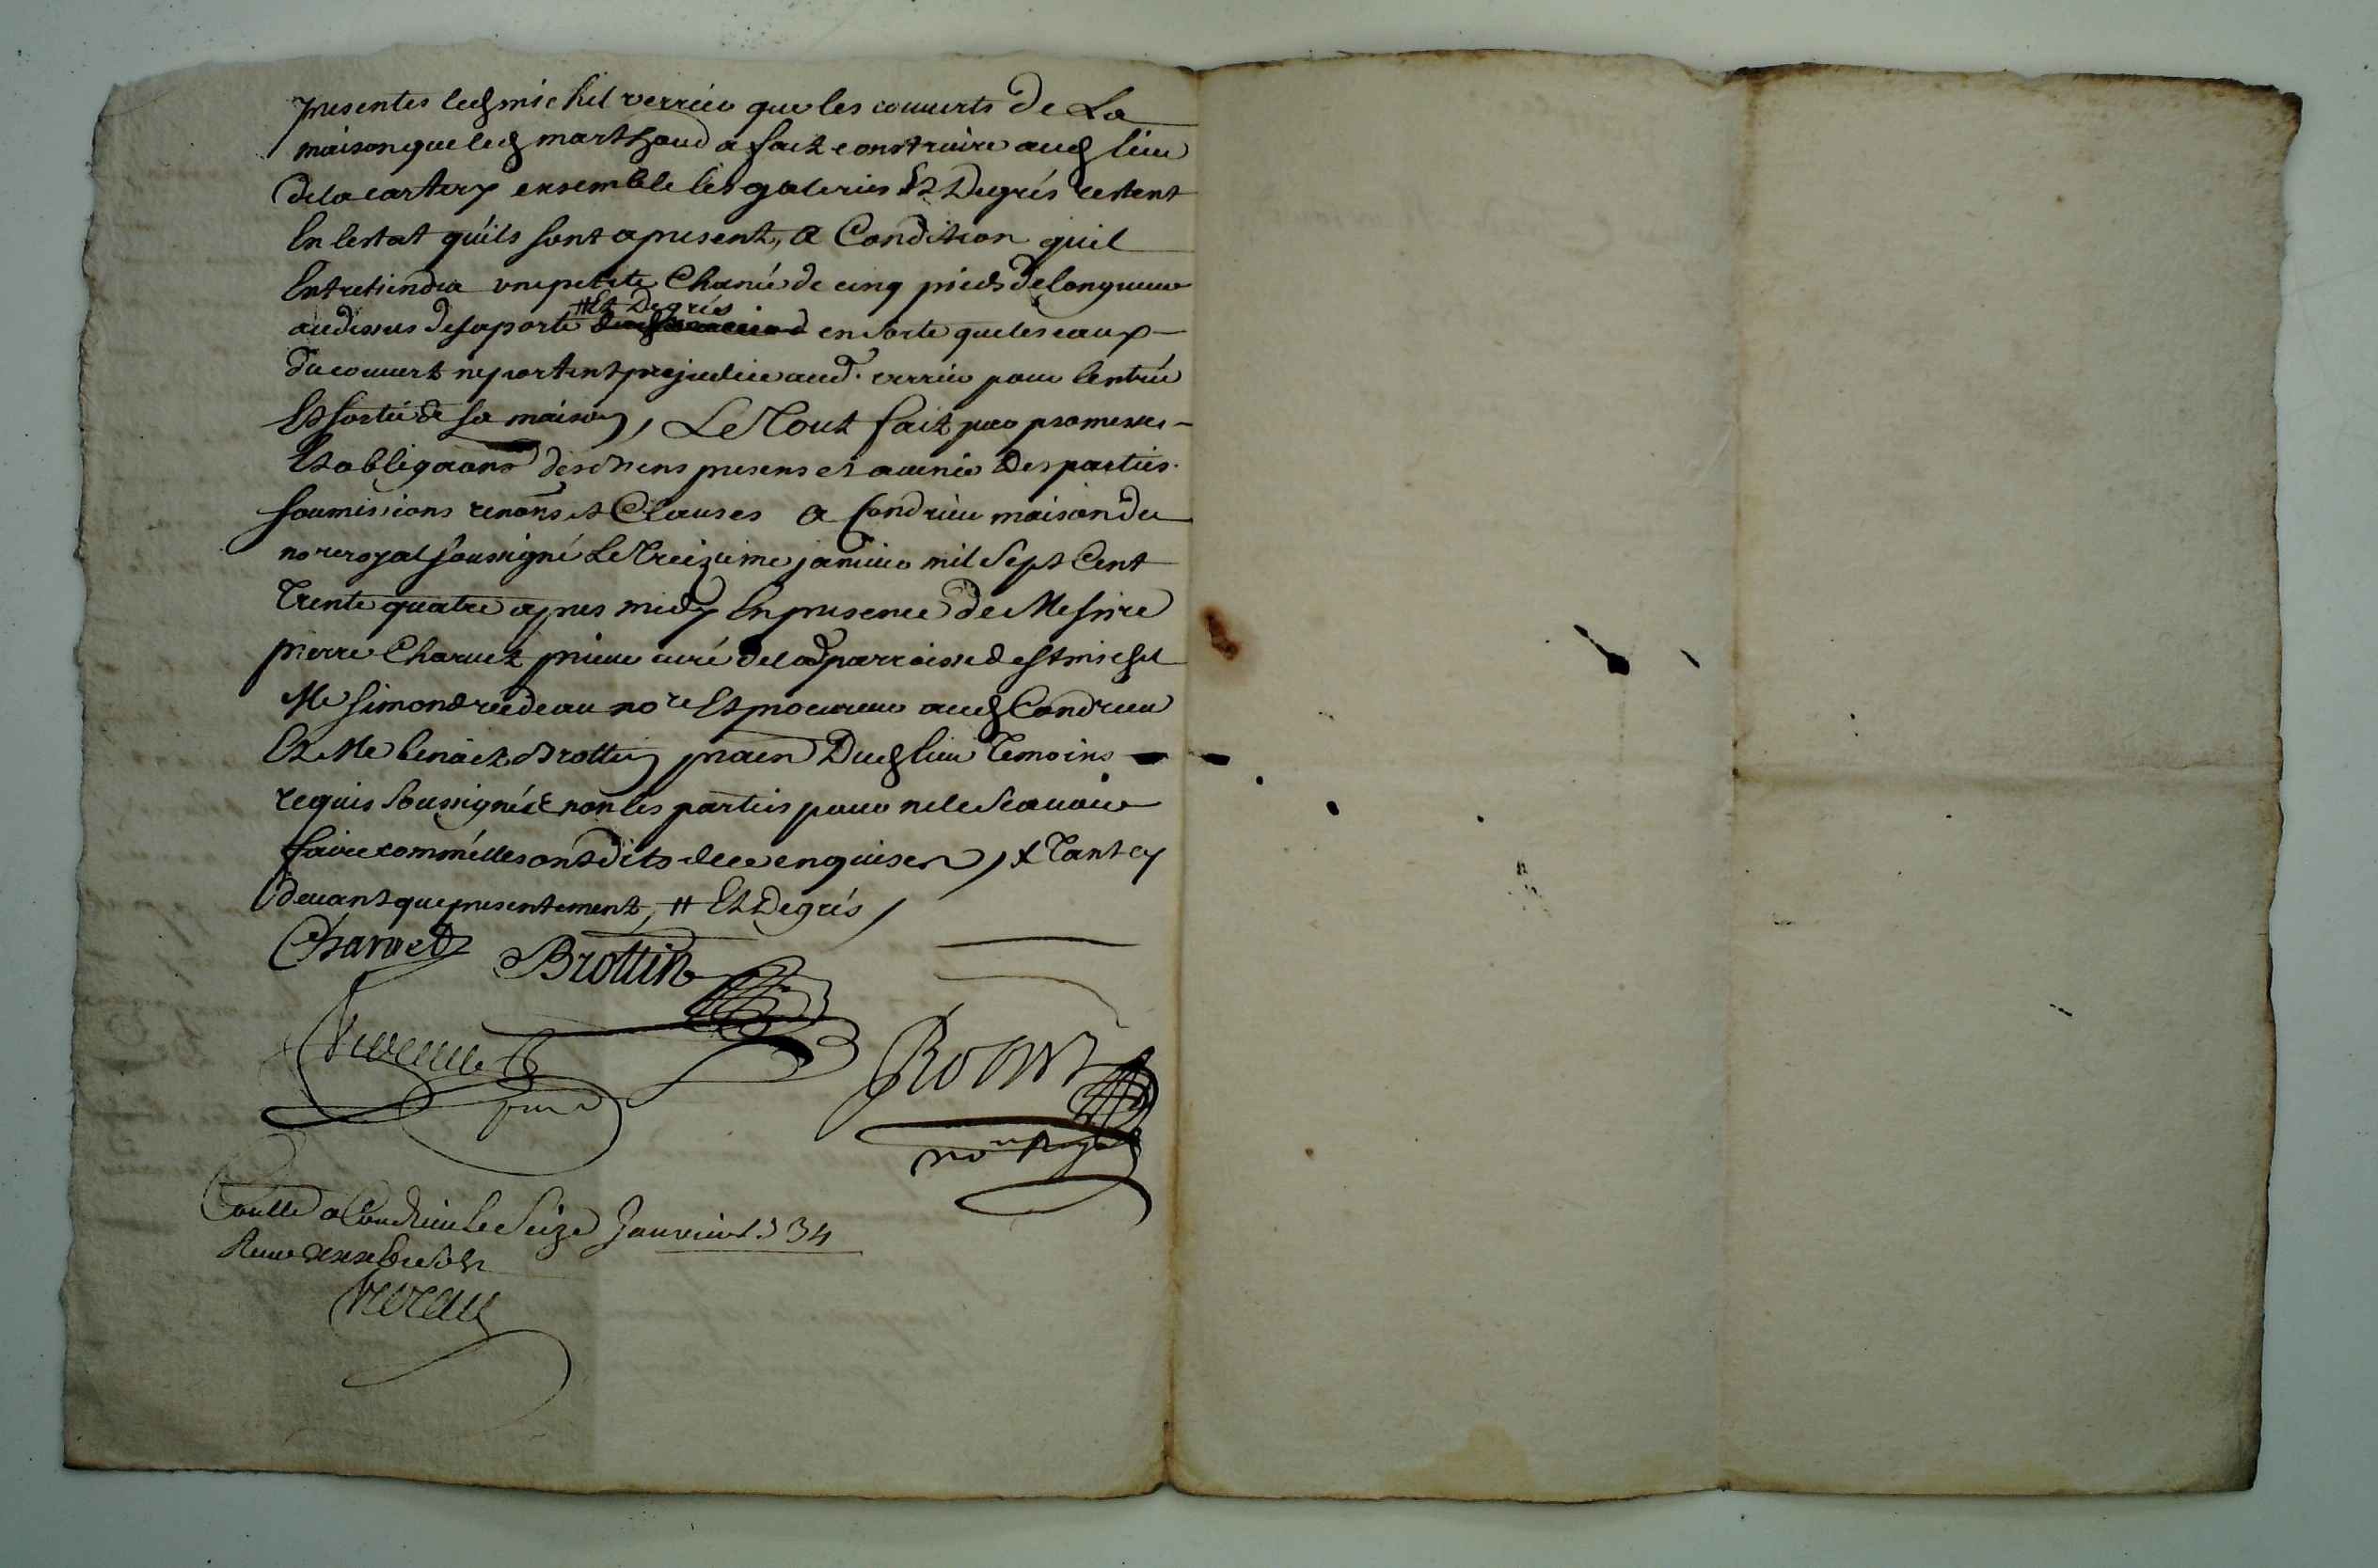 presentes led michel verrieu que les couverts de La
maison que led marthoud a fait construire aud lieu
de la cartery ensemble les galeries Et Degrés restent
En lestat qu'ils sont apresent, a Condition quil
Entretiendra une petite Chanée de cinq pieds de longueur
audessus de sa porte #Et Degrés en sorte que les eaux
du couvert ne portent prejudice aud. verrieu pour lentrée
Et sortie de sa maison, Le Tout fait par promesses
Et obligaons des biens presens et avenir Des parties.
soumissions renons et Clauses a Condrieu maison du
nore royal soussigné Le Treizieme janvier mil Sept Cent
Trente quatre apres midy En presence de Messire
pierre Charvet prieur curé de lad parroisse de st michel
Me simond nore Et procureur aud Condrieu
Et Me benoit Brottin praen Dud lieu Temoins
requis soussignés & non les parties pour ne le scavoir
faire comme elles ont dits de ce enquises, x Tant cy
devant que presentement, # Et Degrés /
Charvet Brottin
nore Royal
Conllé a Condrieu le Seize Janvier 1734